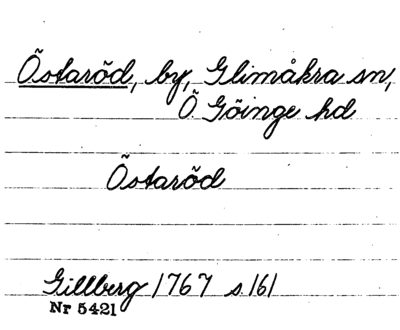 Östaröd, by, Glimåkra sn,
Ö. Göinge hd
Östaröd
Gillberg 1767 s. 161
Nr 5421